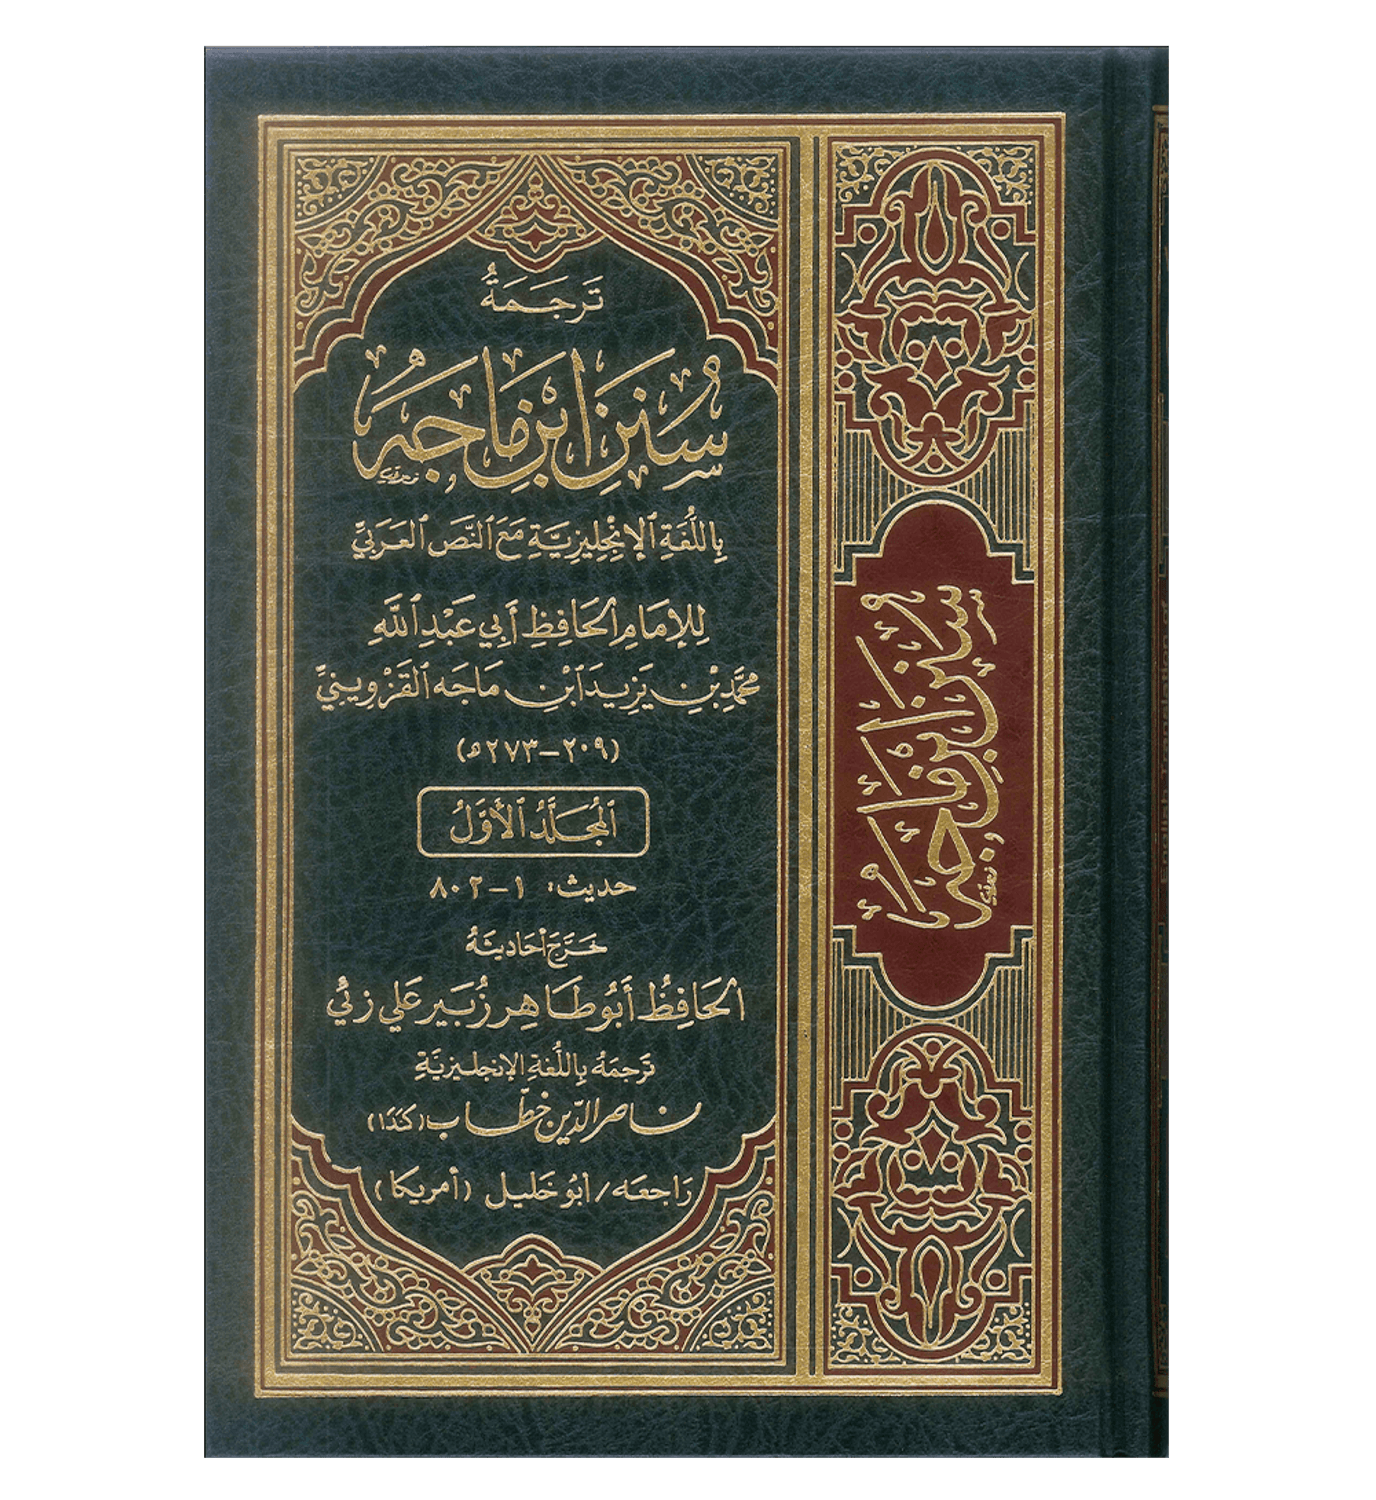 تَرجَمَةُ
سُنَنِ ابْنِ مَاجَهْ
بِاللُّغَةِ الإِنْجِلِيزِيَّةِ مَعَ النَّصِ العَرَبِيِّ
لِلإِمَامِ الحَافِظِ أَبِي عَبْدِ اللَّهِ
مُحَمَّدِ بْنِ يَزِيدَ ابْنِ مَاجَه القَزْوِينِيِّ
(٢٠٩-٢٧٣ه)
المُجَلَّدُ الأَوَّلُ
حديث: ١-٨٠٢
خَرَّجَ أَحَادِيثَهُ
الحَافِظُ أَبُو طَاهِر زُبَير عَلي زئي
تَرجَمَهُ بِاللُّغَةِ الإنجليزيَةِ
ناصر الدّين خطّاب (كَنَدَا)
رَاجعَه / أبُو خَليل (أمريكا)
سُنَنِ ابْنِ مَاجَهْ
English Translation of